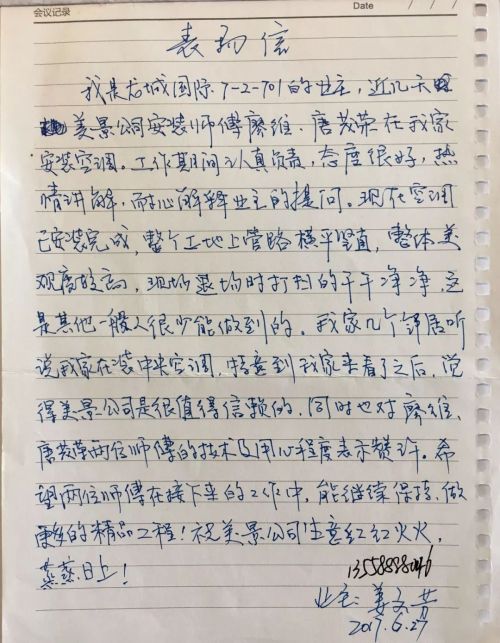 会议记录 Date / / /
表扬信
我是龙城国际7-2-701的业主,近几天
美景公司安装师傅廖维、唐茂荣在我家
安装空调。工作期间认真负责,态度很好,热
情讲解,耐心解释业主的提问。现在空调
已安装完成,整个工地上管路横平竖直,整体美
观度较高,现场退场时打扫的干干净净,这
是其他一般人很少能做到的。我家几个邻居听
说我家在装中央空调,特意到我家来看了之后,觉
得美景公司是很值得信赖的,同时也对廖维、
唐茂荣两位师傅的技术及用心程度表示赞许。希
望两位师傅在接下来的工作中,能继续保持,做
更好的精品工程!祝美景公司生意红红火火,
蒸蒸日上!
业主:姜
2017.6.27